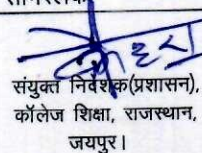 संयुक्त निदेशक(प्रशासन),
कॉलेज शिक्षा, राजस्थान,
जयपुर।